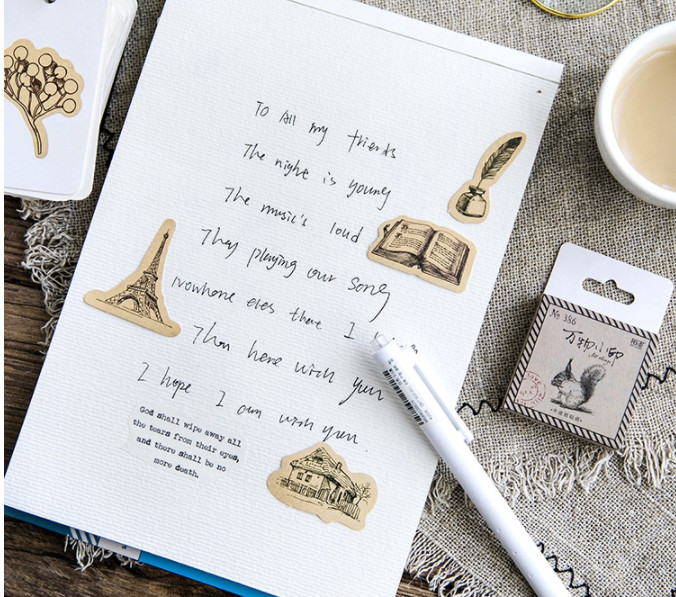 To All my friends
The night is young
The music's loud
They playing our song
Nowhere eles there I
Than here with you
I hope I am with you.
God shall wipe away all
the tears from their eyes,
and there shall be no
more death.
№ 386
万物小印